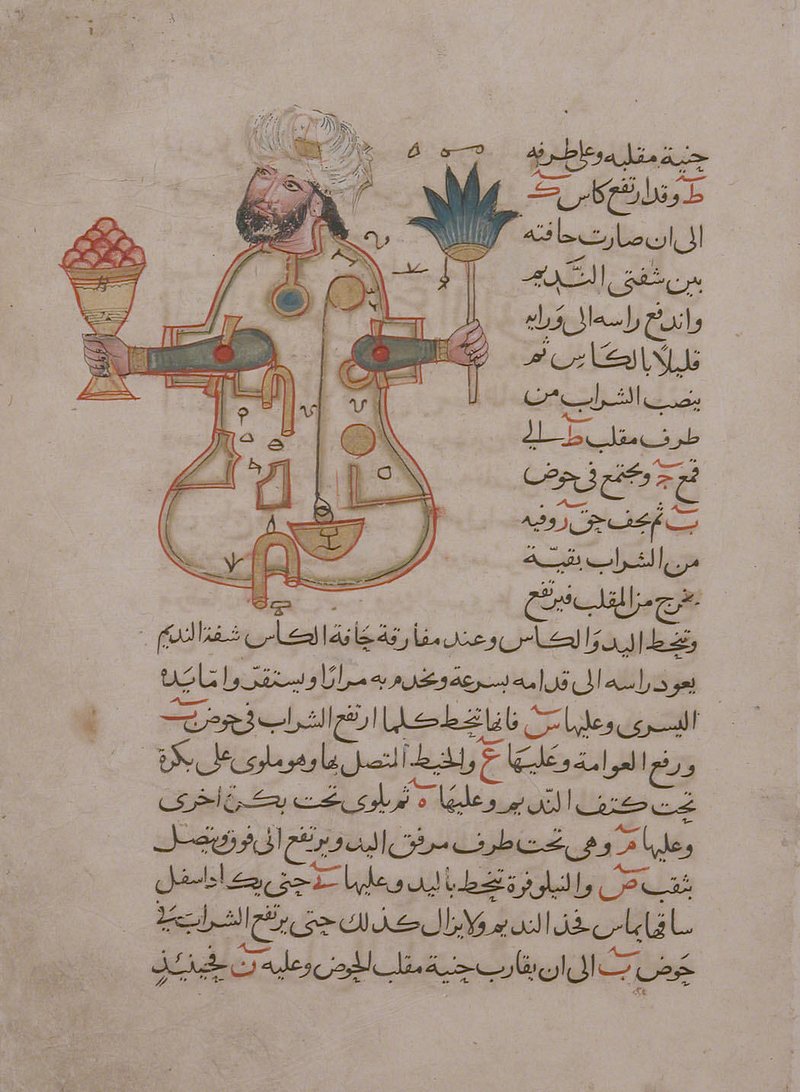 جنية مقلبه وعلى طرفه
ط وقد ارتفع كاس ك
الى ان صارت حافته
بين شفتى النديم
واندفع راسه الى ورايه
قليلا بالكاس ثم
ينصب الشراب من
طرف مقلب ط الى
قمع ج ويجتمع فى حوض
ب ثم يجف حق ز وفيه
من الشراب بقية
يخرج من المقلب فيرتفع
وتنحط اليد والكاس وعند مفارقة حافة الكاس شفة النديم
يعود راسه الى قدامه بسرعة ويخدم به مرارا ويستقر واما يده
اليسرى وعليها س فانها تنحط كلما ارتفع الشراب فى حوض ب
ورفع العوامة وعليها ع والخيط المتصل بها وهو ملوى على بكرة
تحت كتف النديم وعليها ه ثم يلوى تحت بكرة اخرى
وعليها م وهى تحت طرف مرفق اليد ويرتفع الى فوق ويتصل
بثقب ص والنيلوفرة تنحط باليد وعليها حتى يكاد اسفل
ساقها يماس فخذ النديم ولا يزال كذلك حتى يرتفع الشراب فى
حوض ب الى ان يقارب جنية مقلب الحوض وعليه ن فحينئذ